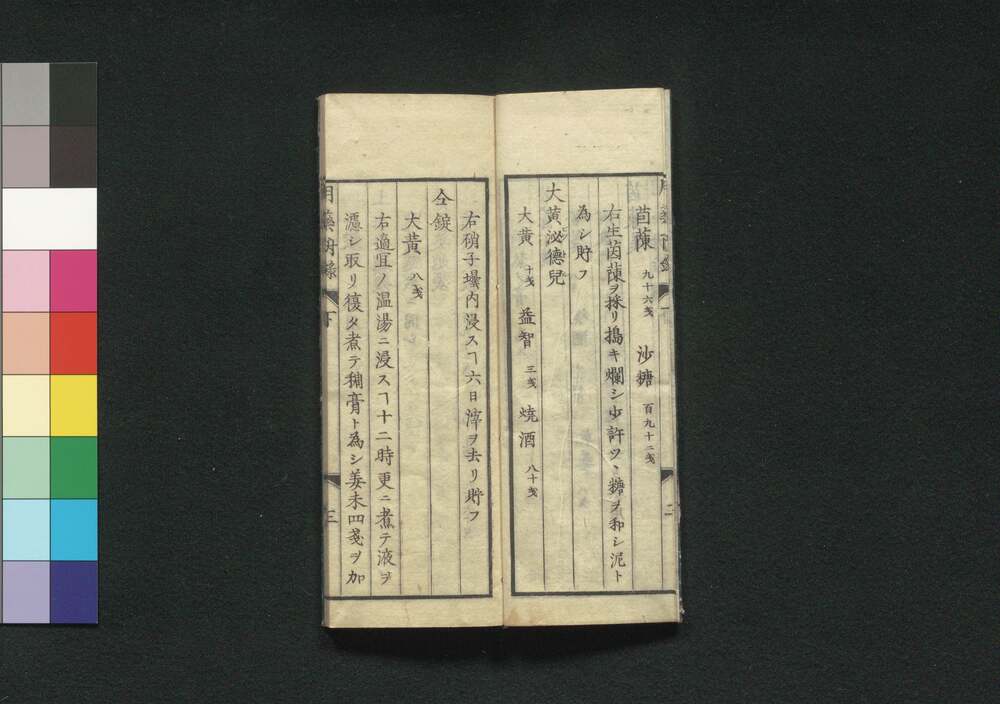 茵蔯 九十六戔 沙糖 百九十二戔
右生茵蔯ヲ採リ搗キ爛シ少許ツヽ糖ヲ和シ泥ト
為シ貯フ
大黄泌德兒
大黄 十戔 益智 三戔 焼酒 八十戔
二
右硝子壜内浸スヿ六日滓ヲ去リ貯フ
仝錠
大黄 八戔
右適宜ノ温湯ニ浸スヿ十二時更ニ煮テ液ヲ
漉シ取リ復タ煮テ稠膏ト為シ姜末四戔ヲ加
用藥附録
下
三